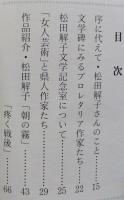 目次
序に代えて・松田解子さんのこと 15
文学碑にみるプロレタリア作家たち 22
松田解子文学記念室について 25
「女人芸術」と県人作家たち 29
作品紹介・松田解子「朝の霧」 43
「疼く戦後」 66